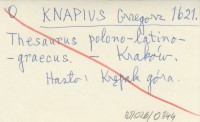 O KNAPIUS Grzegorz 1621.
Thesaurus polono-latino-
-graecus. — Kraków.
Hasło: Krępak góra.